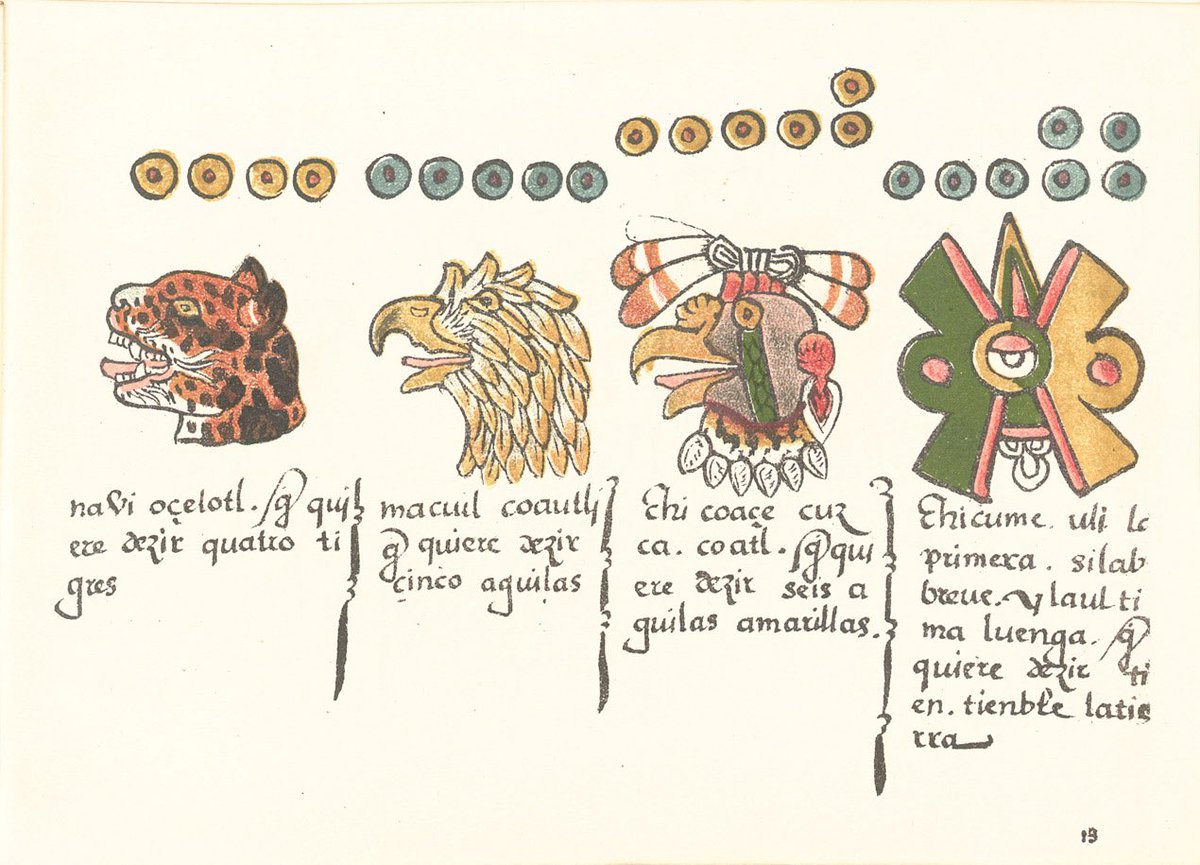 navi oçelotl. q̃ qui
ere dezir quatro ti
gres
macuil coautli
q̃ quiere dezir
çinco aguilas
chi coaçe cuz
ca. coatl. q̃ qui
ere dezir seis a
guilas amarillas.
chicume. uli la
primera. silab
breue. y laulti
ma luenga. q̃
quiere dezir ti
en. tienble latie
rra
13